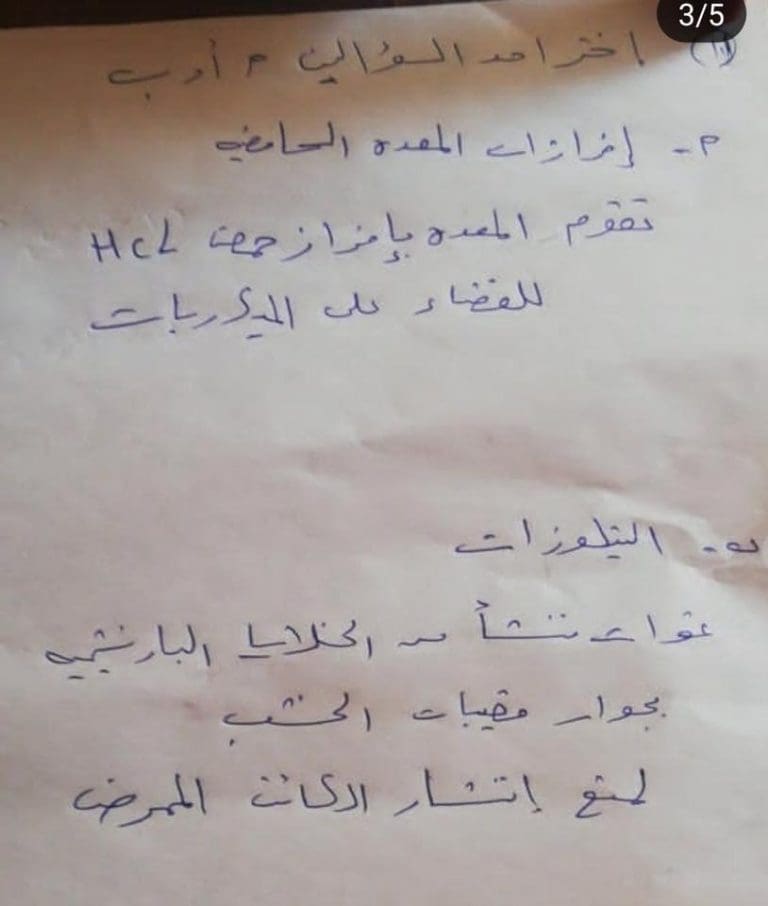 3/5
(١١) إختر احد السؤالين م أو ب
م - إفرازات المعده الحامضيه
تقوم المعده بإفراز حمض HCL
للقضاء على الميكروبات
ب - التيلوزات
نموات تنشأ من الخلايا البارنشيميه
بجوار قصيبات الخشب
لمنع إنتشار الكائن الممرض